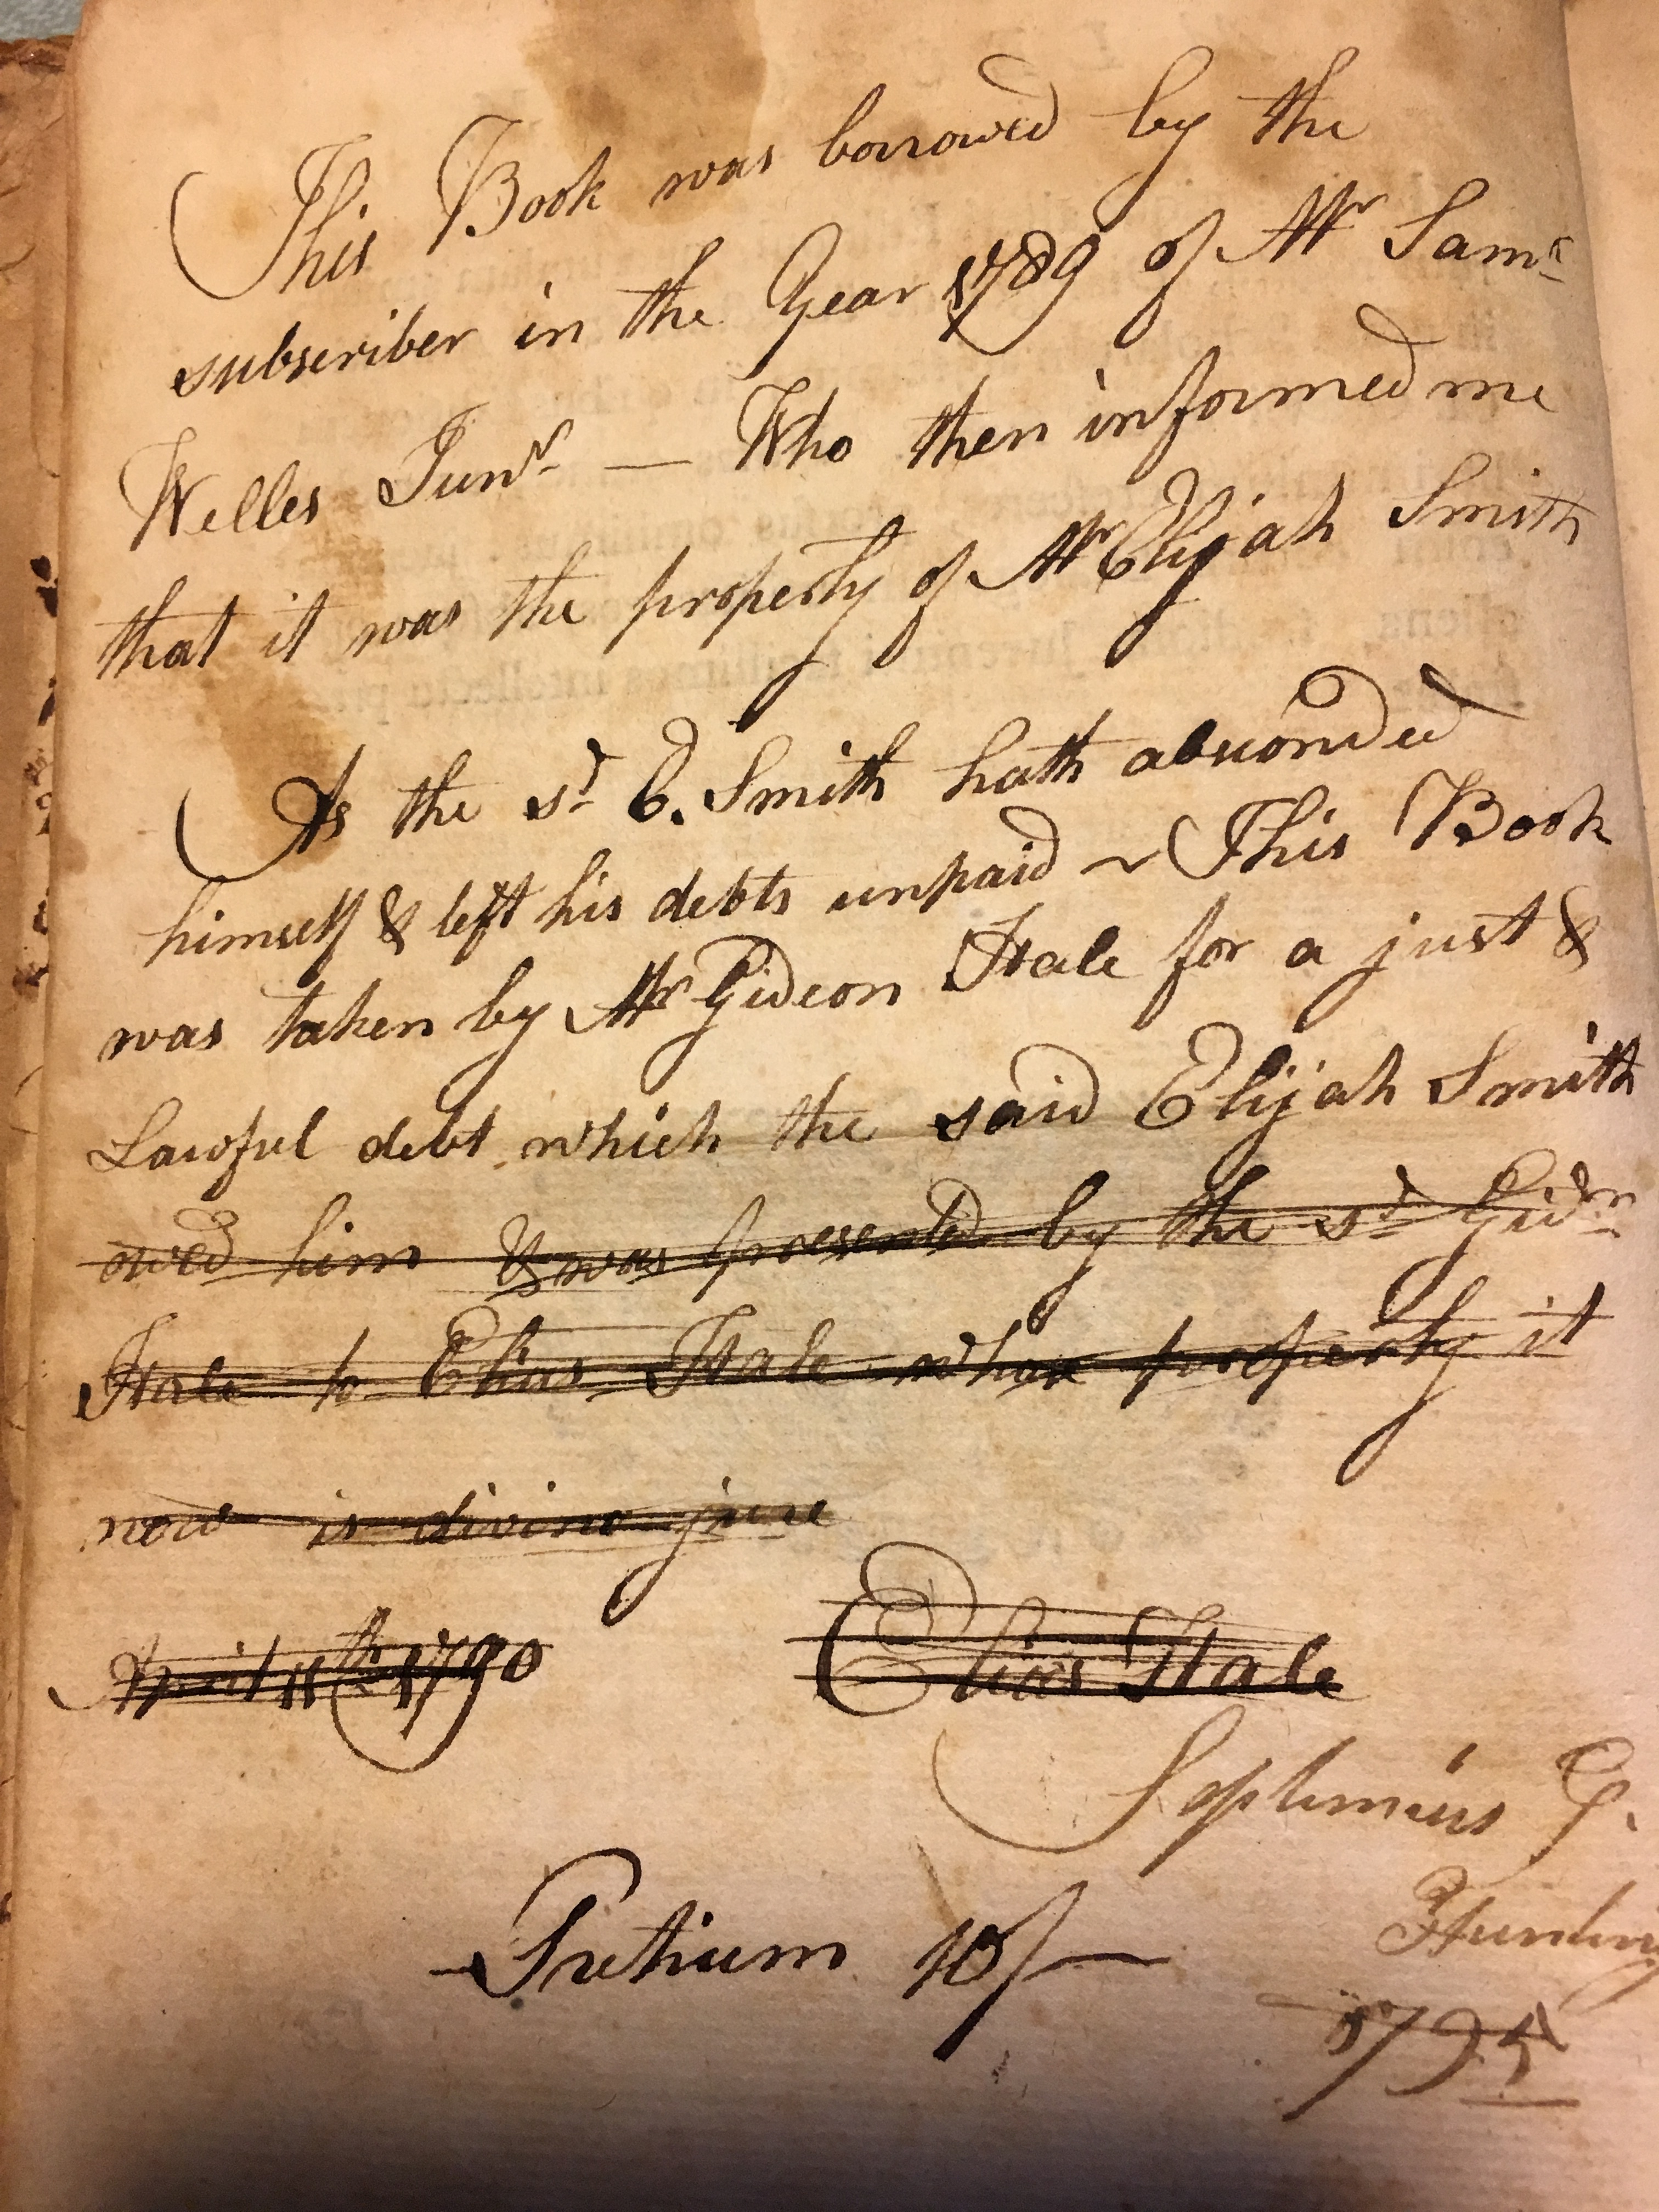 This Book was borrowed by the
subscriber in the Year 1789 of Mr Saml
Welles Junr — Who then informed me
that it was the property of Mr Elijah Smith
As the sd E. Smith hath absconded
himself & left his debts unpaid ~ This Book
was taken by Mr Gideon Hale for a just &
Lawful debt which the said Elijah Smith
owed him & was presented by the sd Gidn
Hale to Elias Hale whose property it
now is divino jure
April 11th 1790 Elias Hale
Septimius G.
Pretium 10/—
1795